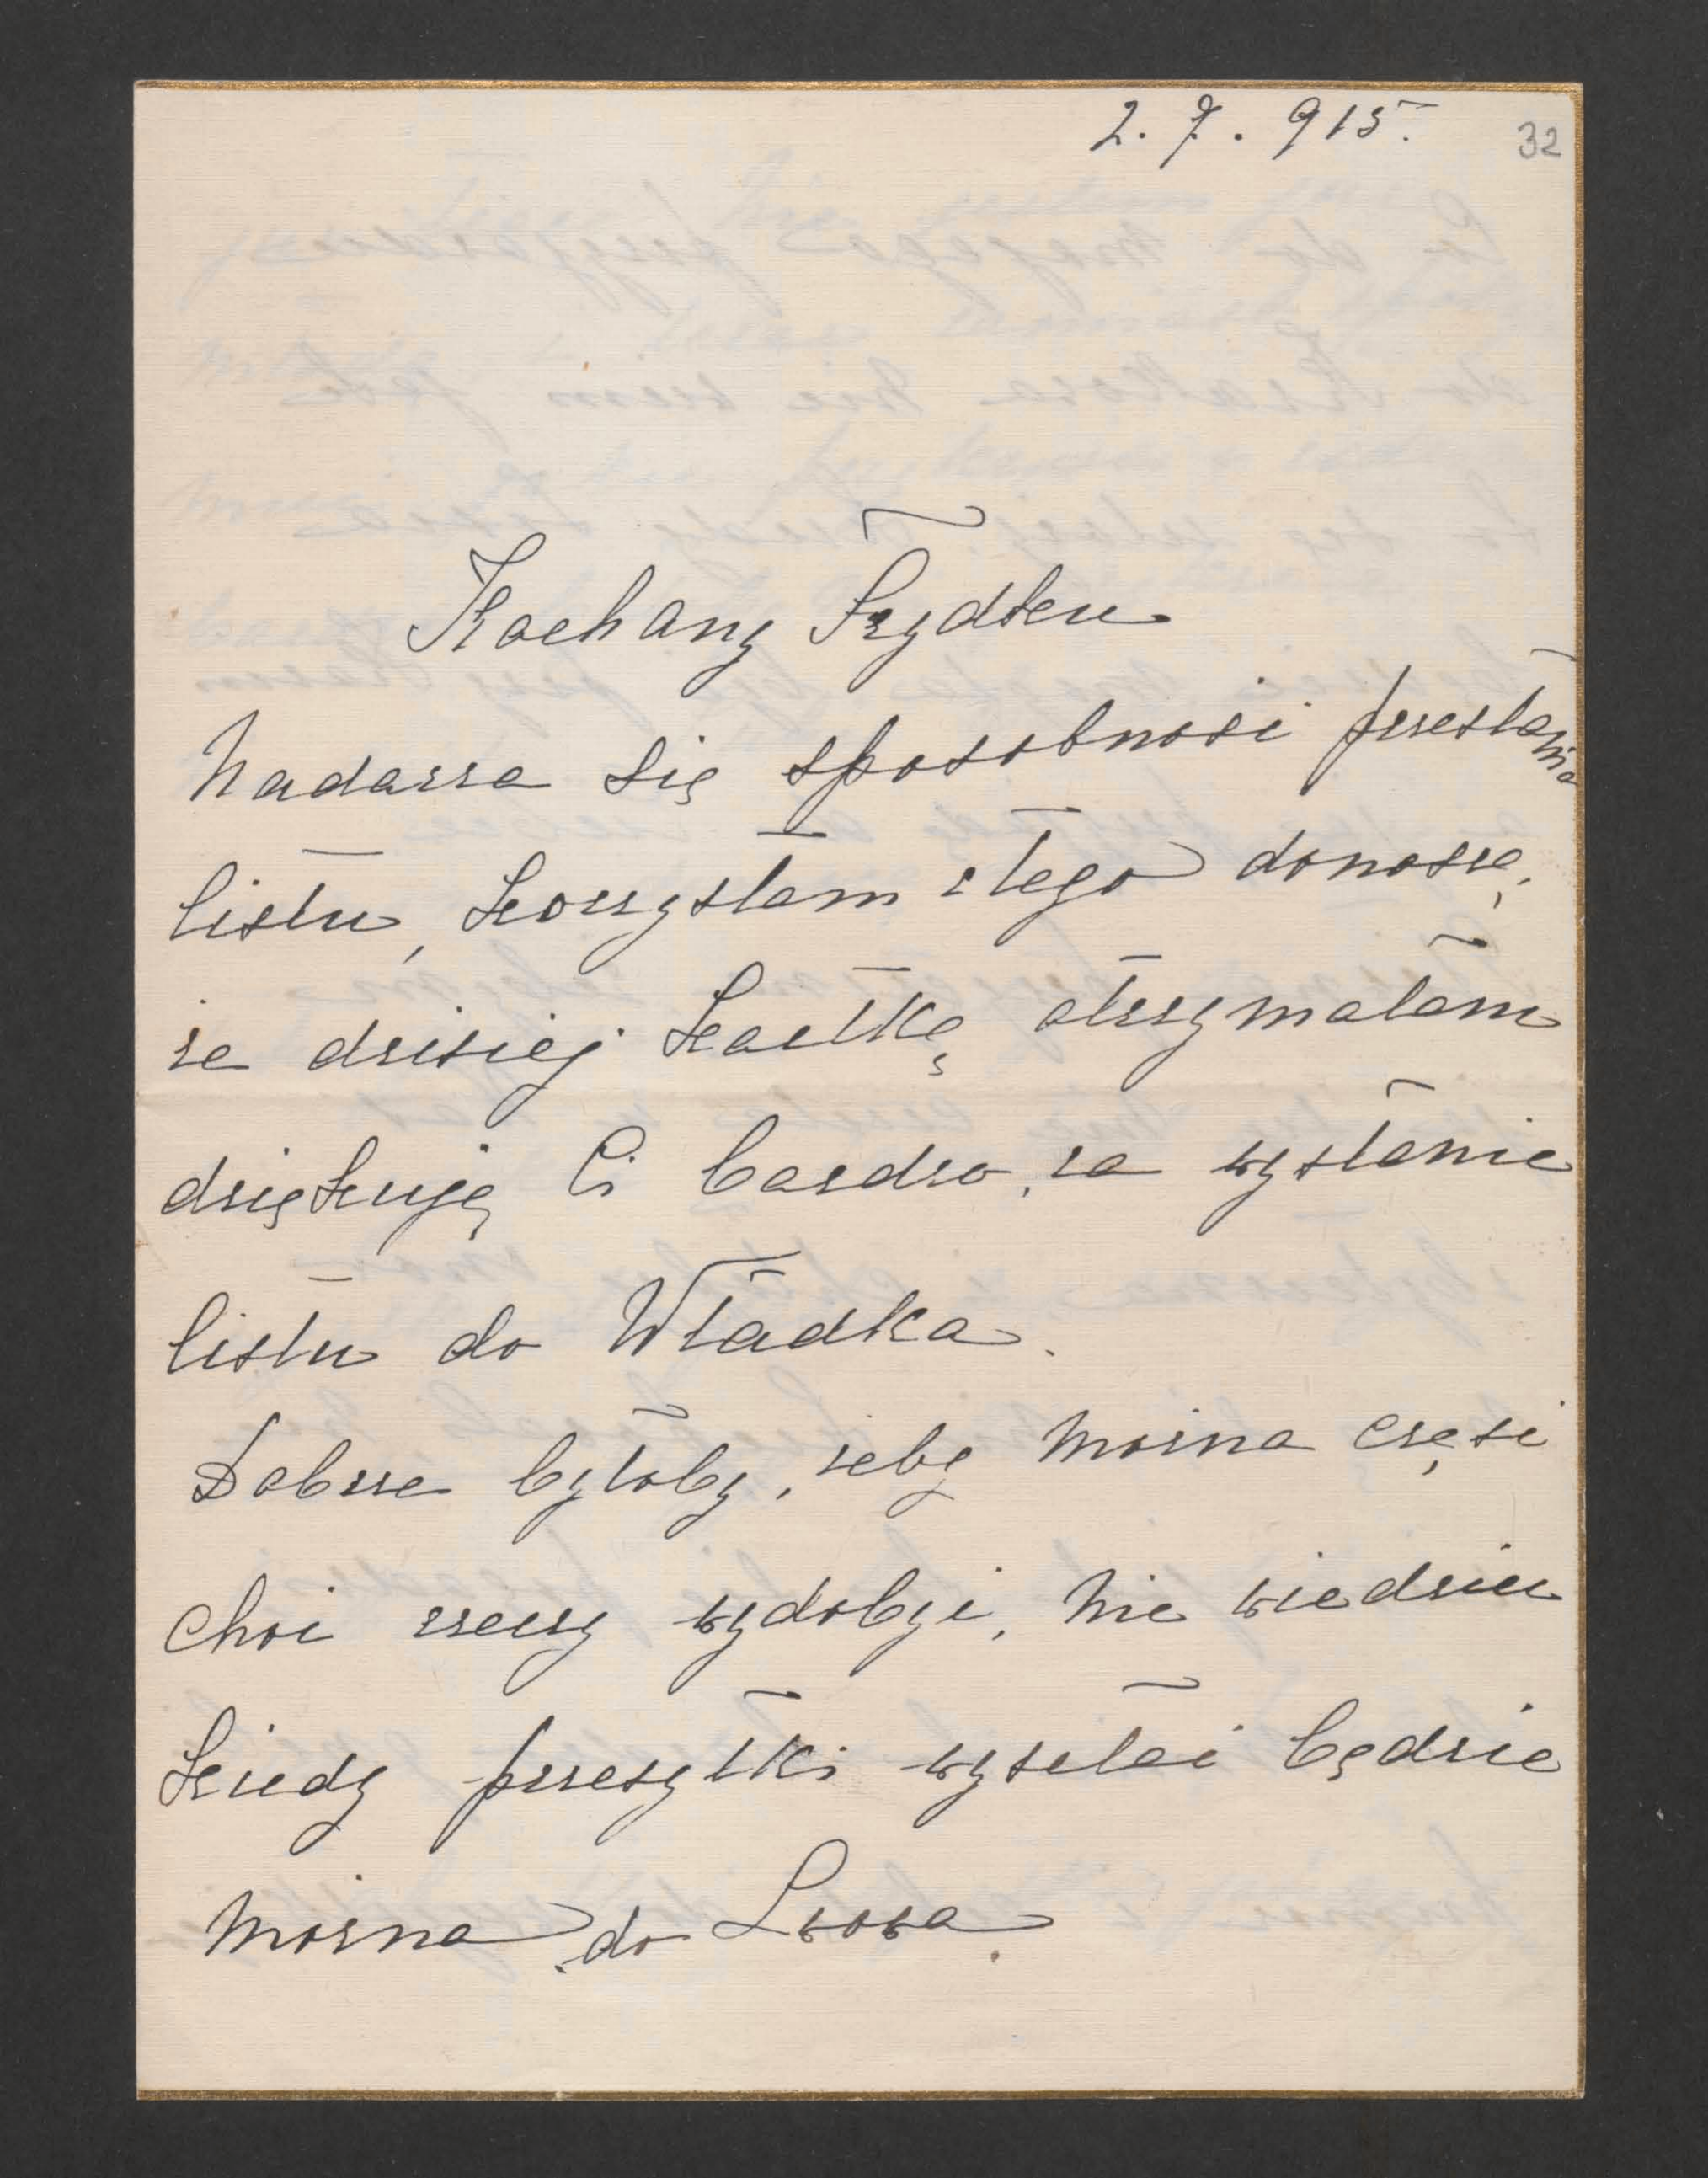 2. 7. 915.
32
Kochany Frydku
Nadarza się sposobność przesłania
listu, korzystam z tego donoszę,
że dzisiej kartkę otrzymałam
dziękuję Ci bardzo, za wysłanie
listu do Władka.
Dobrze byłoby, żeby można część
choć rzeczy wydobyć, nie wiedzieć
kiedy przesyłki wysełać będzie
można do Lwowa.